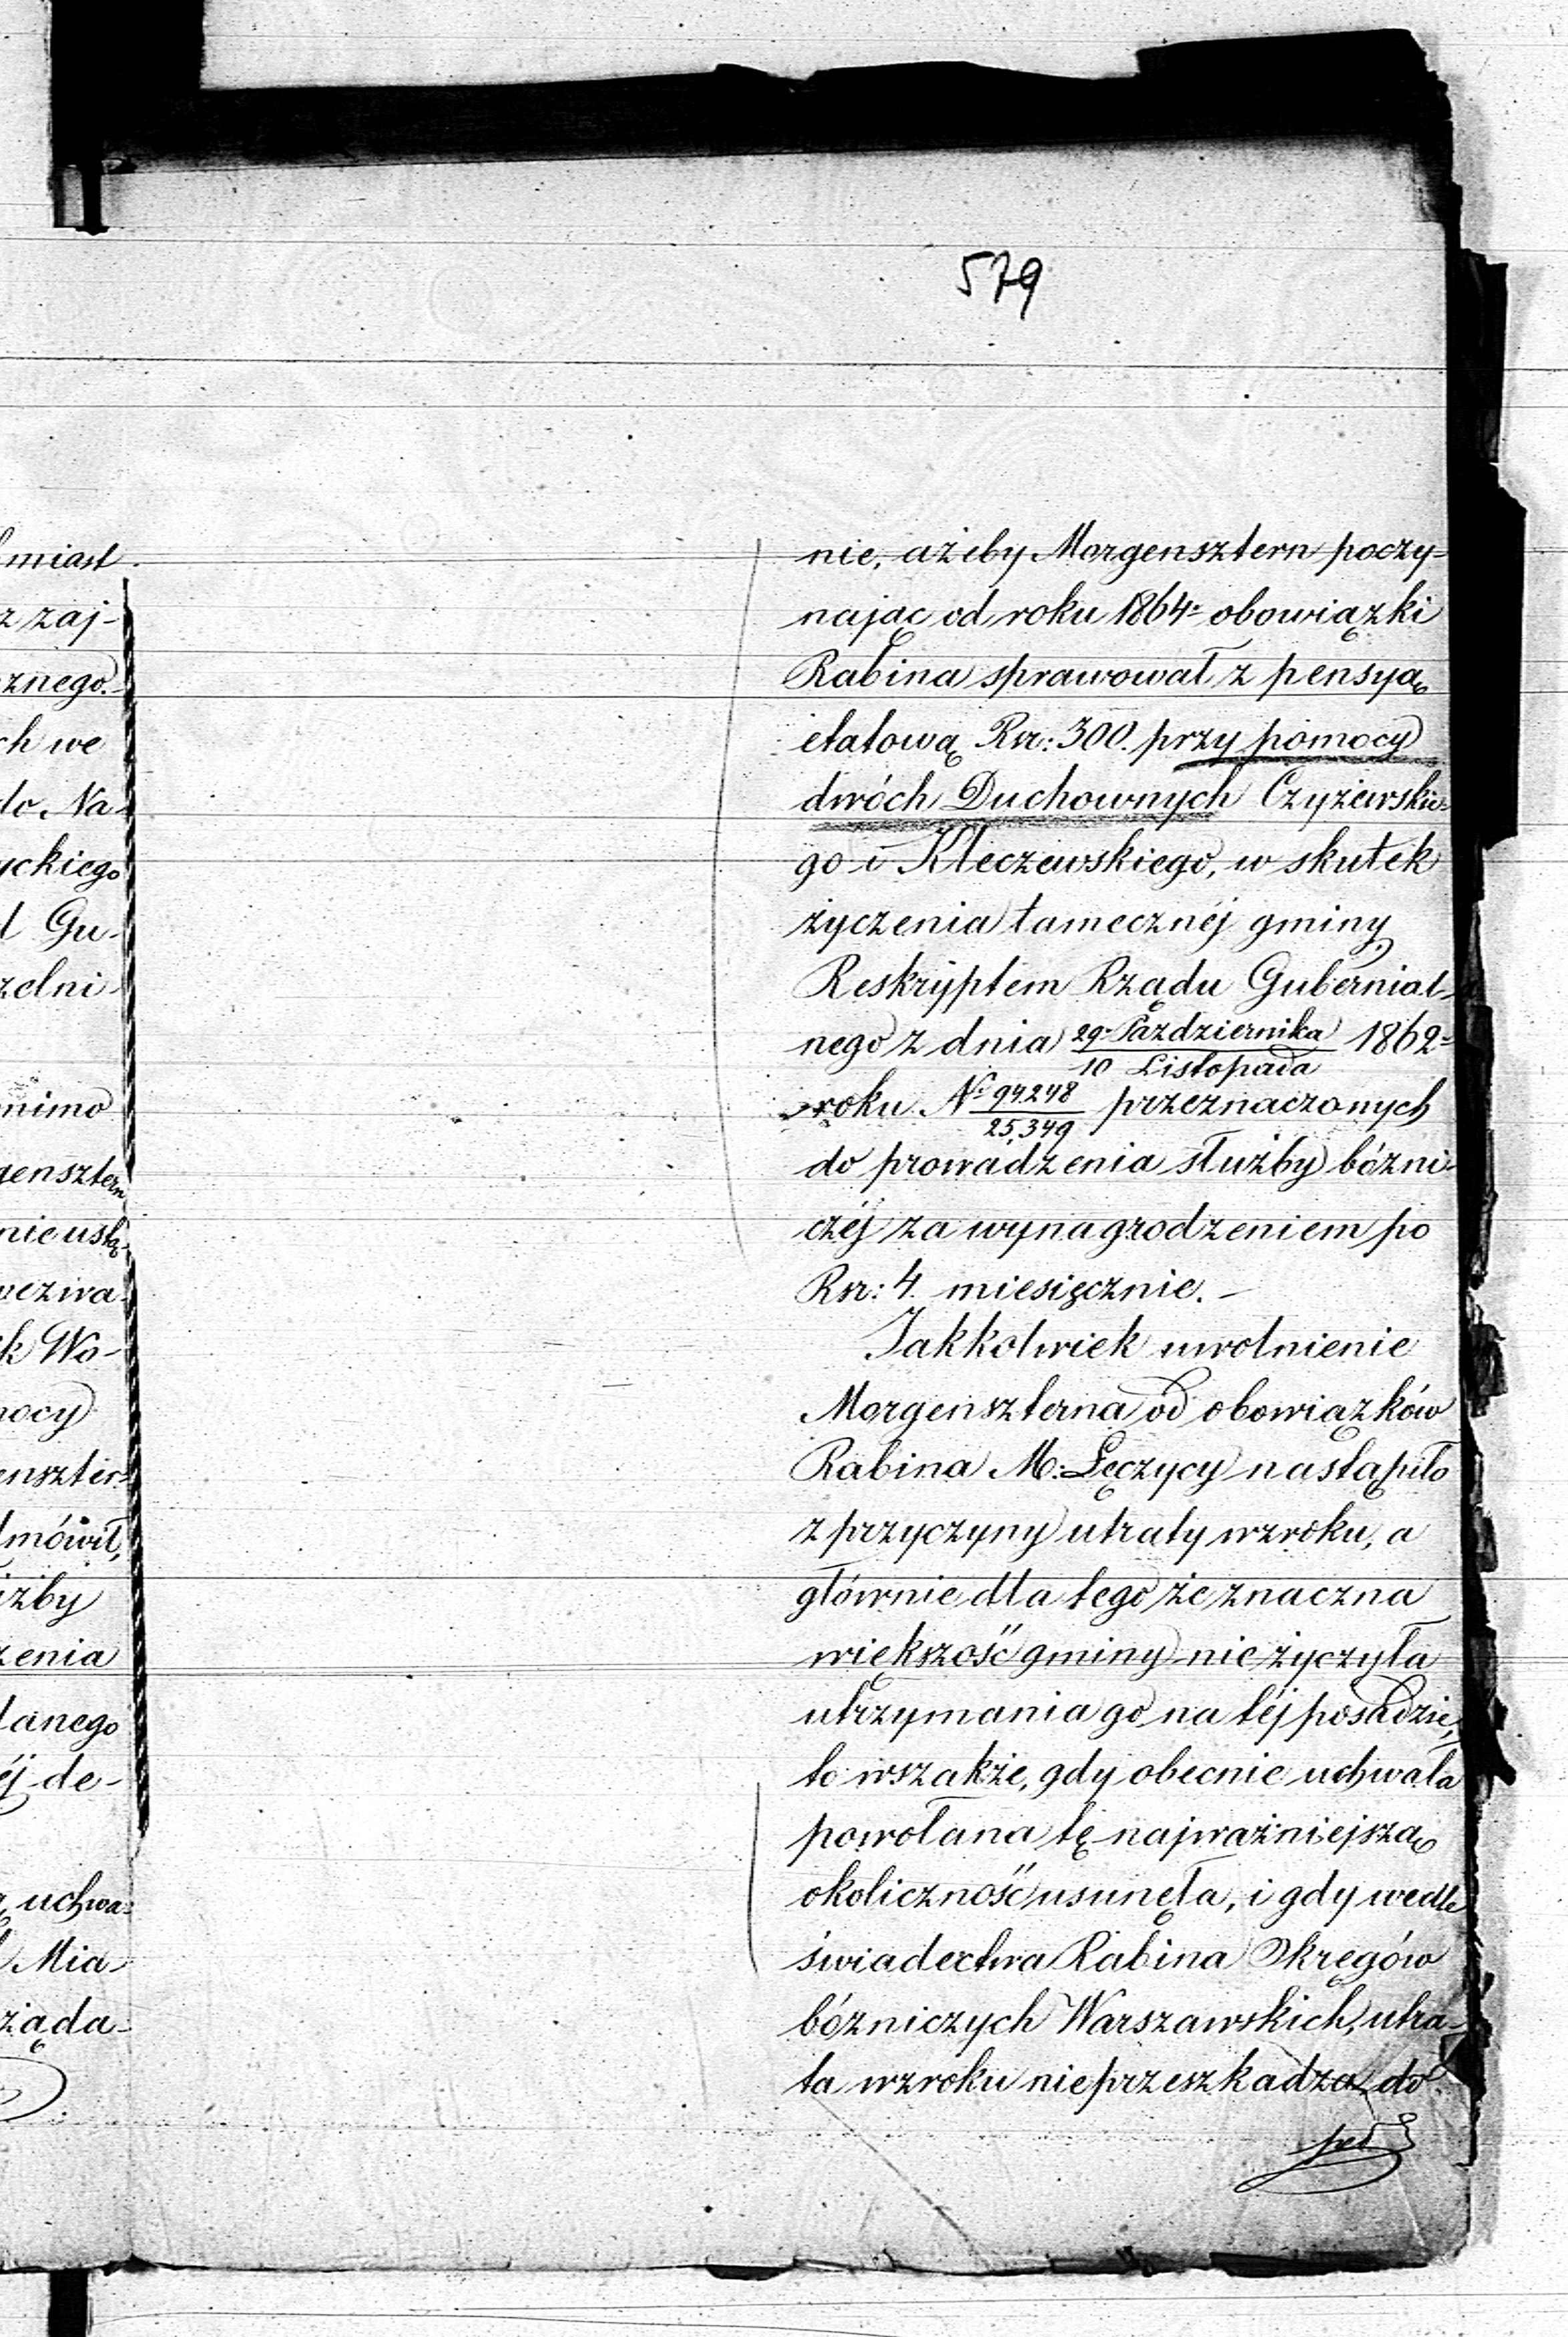 579
miast
z zaj-
znego.
ch we
do Na-
yckiego
d Gu-
zelni-
mimo
gensztern
nie ustą-
wezwa-
k Wo-
mocy
enszter-
dmówił,
iżby
zenia
danego
éj de-
uchwa-
Mia-
żąda-
nie, ażeby Morgensztern poczy-
nając od roku 1864 obowiązki
Rabina sprawował z pensyą
etatową Rsr: 300. przy pomocy
dwóch Duchownych Czyżewskie-
go i Kleczewskiego, w skutek
życzenia tamecznéj gminy
Reskryptem Rządu Gubernial-
nego z dnia 29 Października / 10 Listopada 1862
roku № 94248 / 25,349 przeznaczonych
do prowadzenia służby bóżni-
czéj za wynagrodzeniem po
Rsr: 4. miesięcznie. –
Jakkolwiek uwolnienie
Morgenszterna od obowiązków
Rabina M: Łęczycy nastąpiło
z przyczyny utraty wzroku, a
głównie dla tego że znaczna
większość gminy nie życzyła
utrzymania go na téj posadzie,
to wszakże, gdy obecnie uchwała
powołana tę najważniejszą
okoliczność usunęła, i gdy wedle
świadectwa Rabina Okręgów
bóżniczych Warszawskich, utra-
ta wzroku nieprzeszkadza do